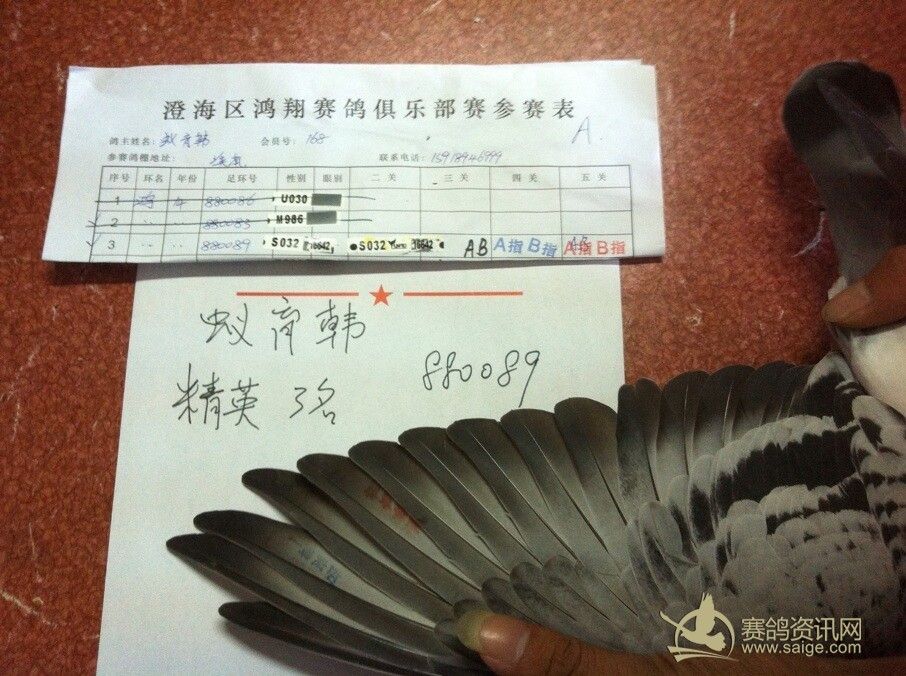 澄海区鸿翔赛鸽俱乐部赛参赛表
A
鸽主姓名: 蚁育韩 会员号: 168
参赛鸽棚地址: 联系电话:
序号 环名 年份 足环号 性别 眼别 二关 三关 四关 五关
1 鸿 14 880086 U030
2 880083 M986
3 880089 S032 16642 S032 16642 AB A指B指 A指B指
蚁育韩
精英 3名 880089
赛鸽资讯网
www.saige.com